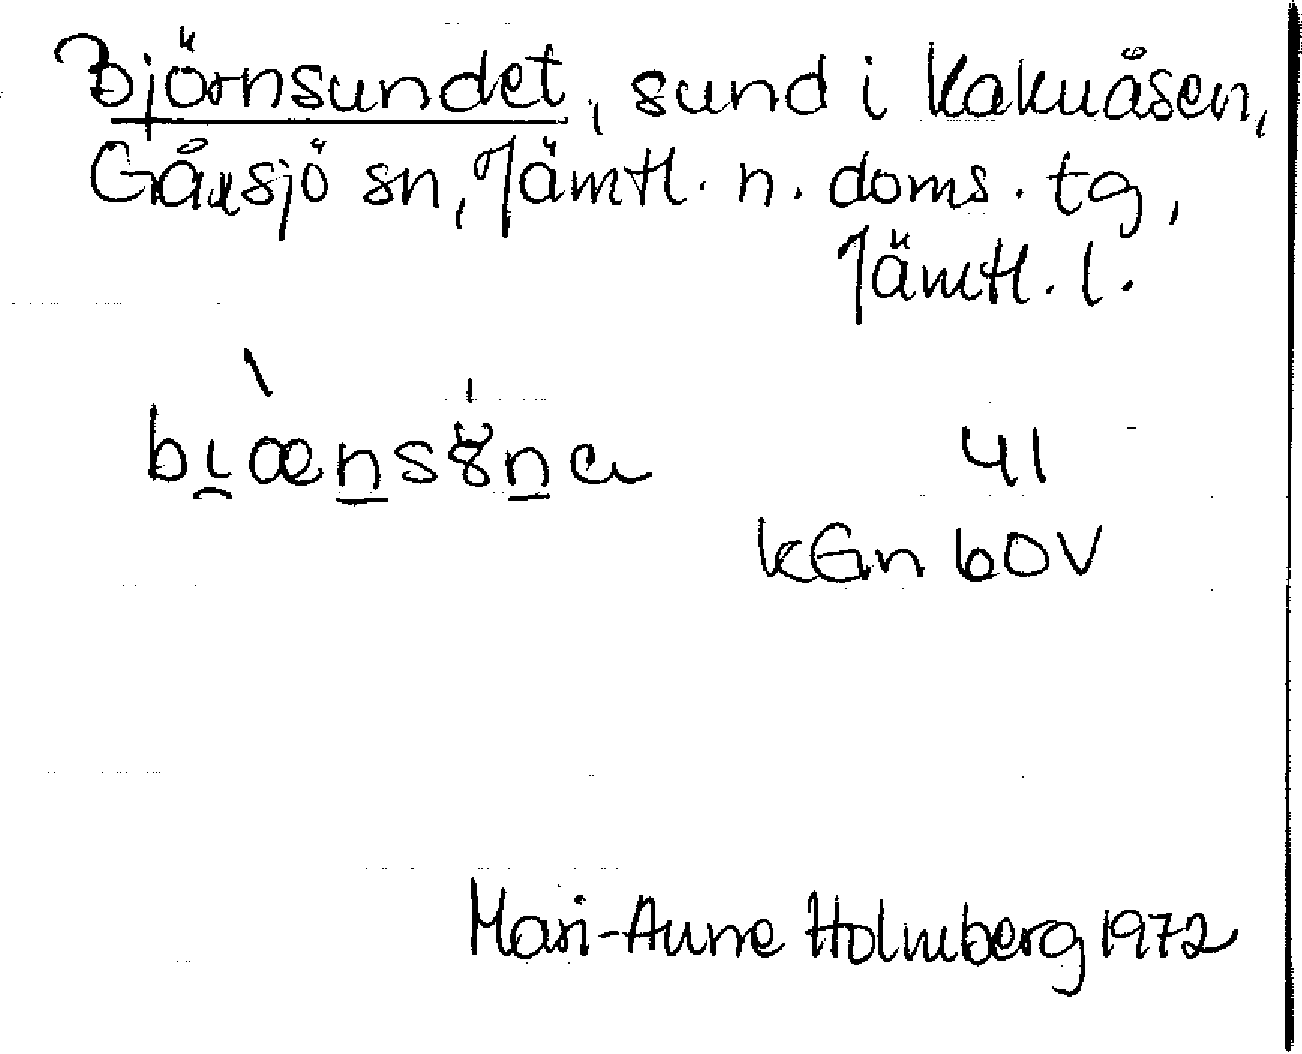 Björnsundet, sund i Kakuåsen,
Gåxsjö sn, Jämtl. n. doms. tg,
Jämtl. l.
41
kGn 60V
Mari-Anne Holmberg 1972